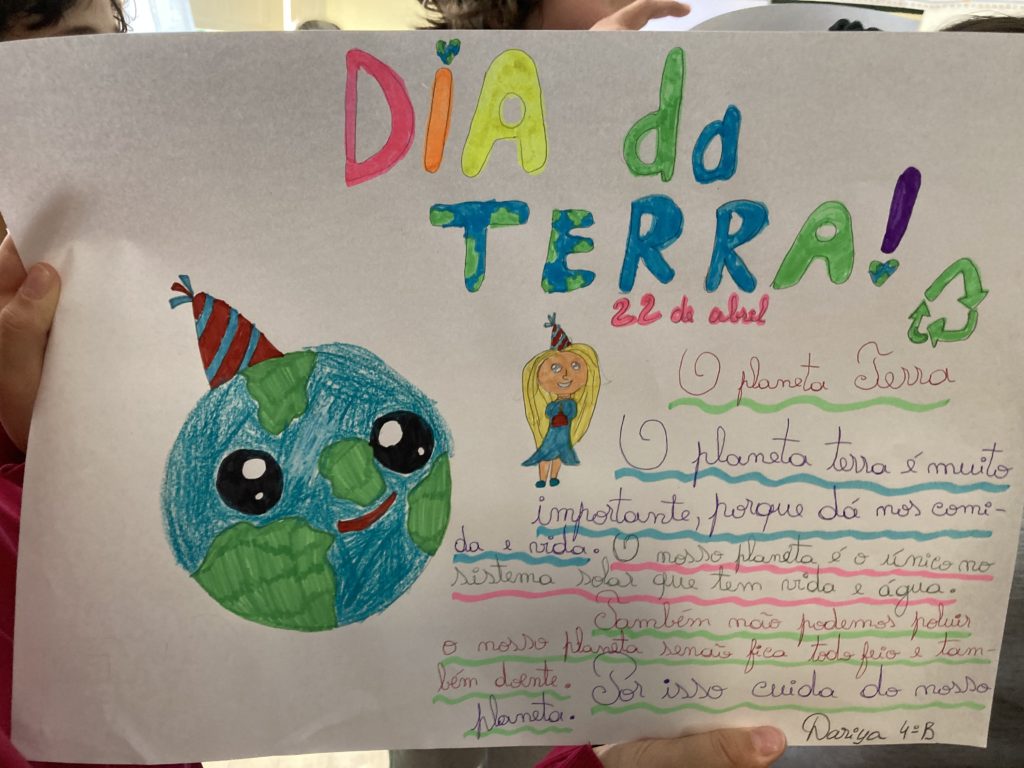 DiA da
TERRA!
22 de abril
O planeta Terra
O planeta terra é muito
importante, porque dá nos comi-
da e vida. O nosso planeta é o único no
sistema solar que tem vida e água.
Também não podemos poluir
o nosso planeta senão fica todo feio e tam-
bém doente. Por isso cuida do nosso
planeta.
Dariya 4ºB